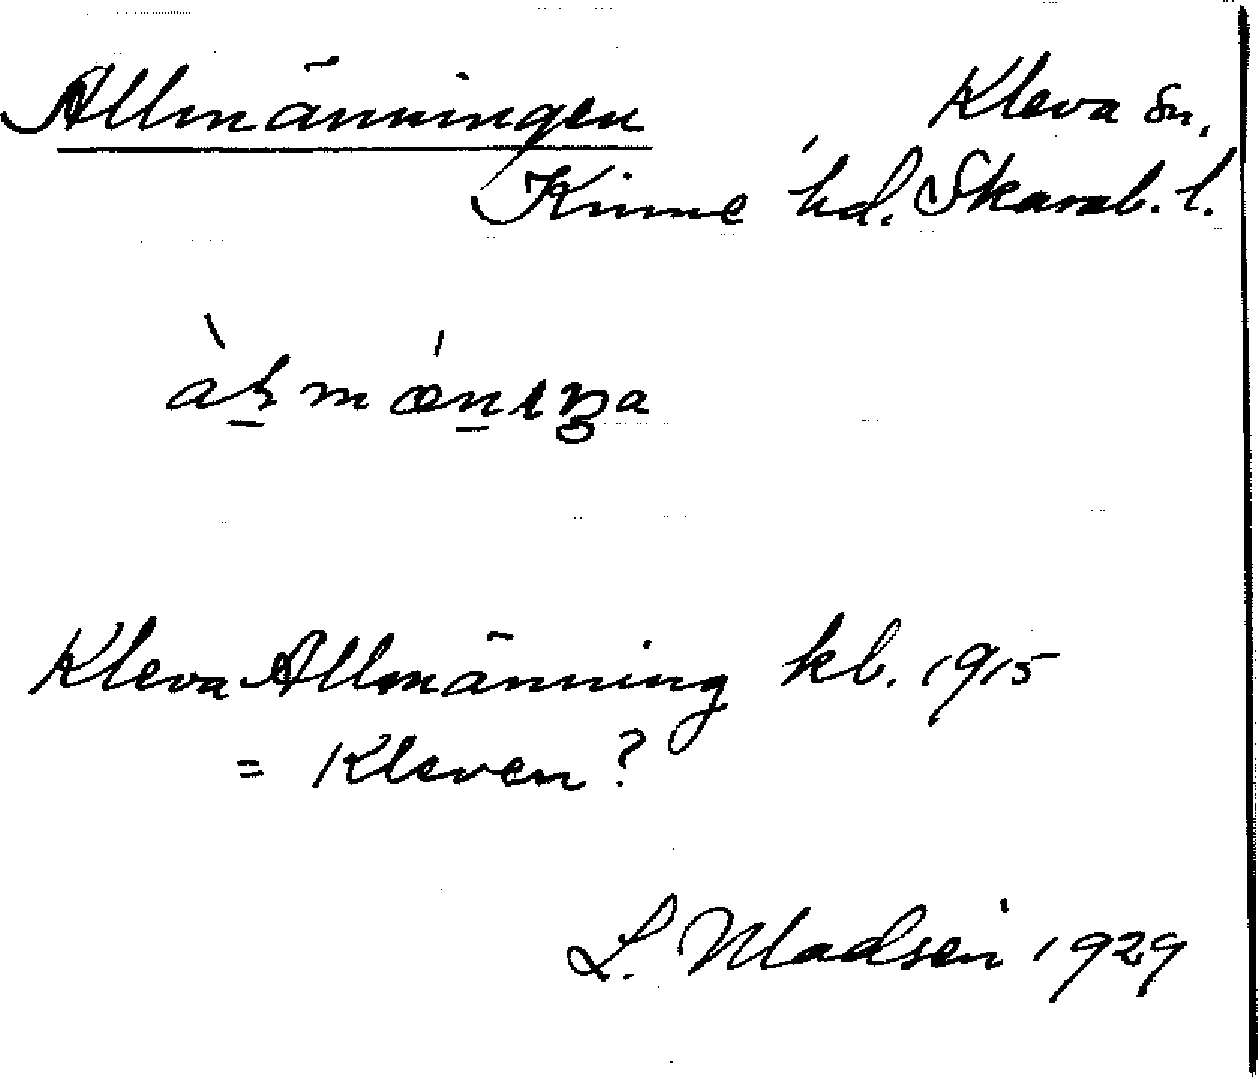 Allmänningen Kleva sn,
Kinne hd. Skarab. l.
Kleva Allmänning kb. 1915
= Kleven?
L. Madsen 1929